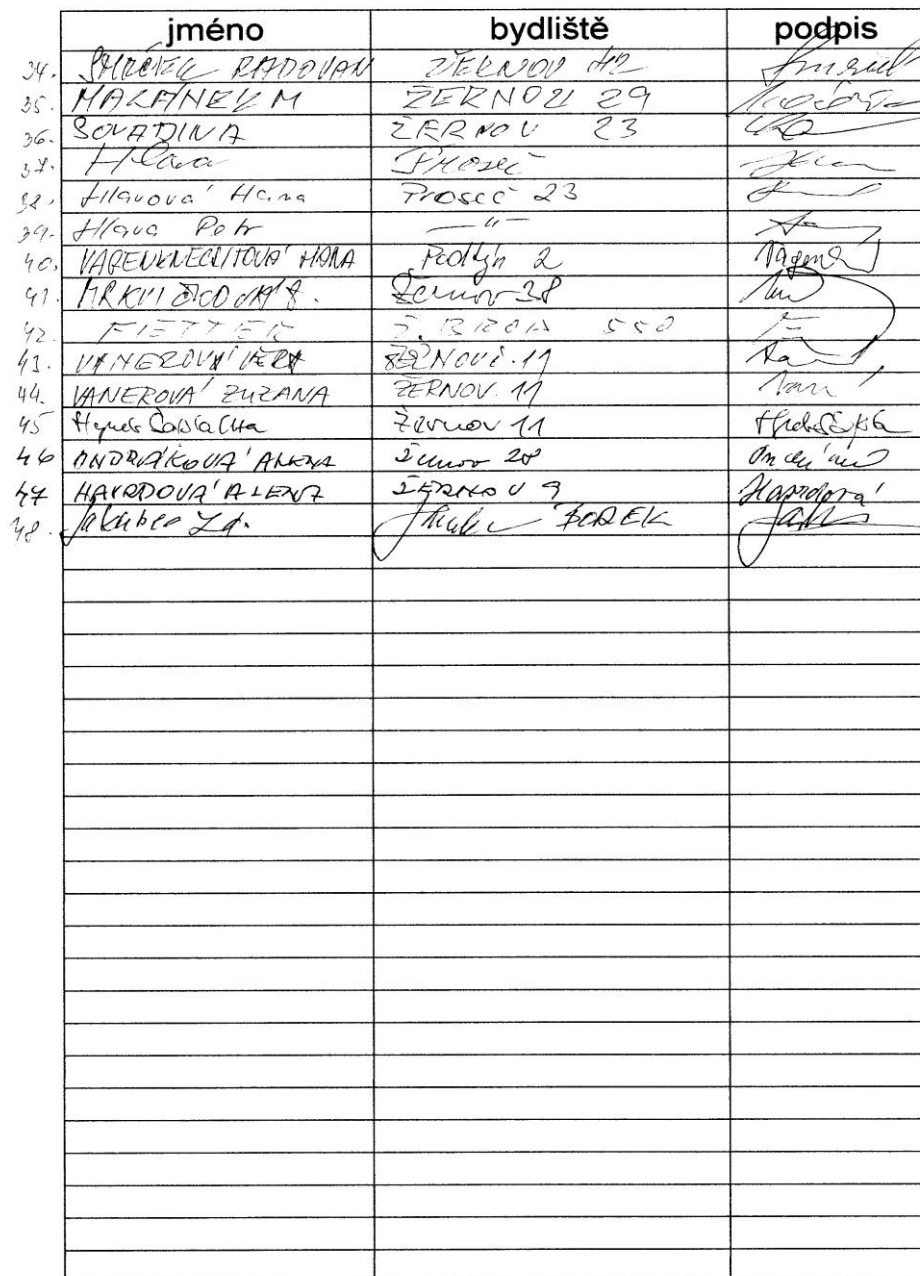 jméno bydliště podpis
34. SMRČEK RADOVAN ŽERNOV 42
35. M ŽERNOV 29
36. SOVADINA ŽERNOV 23
37. Hlava Proseč
38. Hlavová Hana Proseč 23
39. Hlava Petr —"—
40. VAGENKNECHTOVÁ HANA 2
41. MRKVIČKOVÁ Žernov 38
42. FIETTER Ž. BROD 550
43. VANEROVÁ VĚRA ŽERNOV č. 11
44. VANEROVÁ ZUZANA ŽERNOV. 11
45 Hynek Žernov 11
46 ONDRÁKOVÁ ALENA Žernov 28
47 HAVRDOVÁ ALENA ŽERNOV 9 Havrdová
48. Jakubec Zd. BOREK